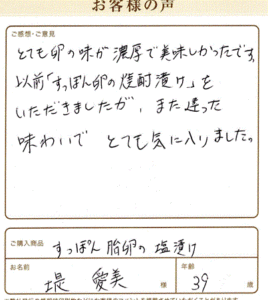 お客様の声
ご感想・ご意見
とても卵の味が濃厚で美味しかったです。
以前「すっぽん卵の焼酎漬け」を
いただきましたが、また違った
味わいで とても気に入りました。
ご購入商品
すっぽん 胎卵の塩漬け
お名前
堤 愛美 様
年齢
39 歳